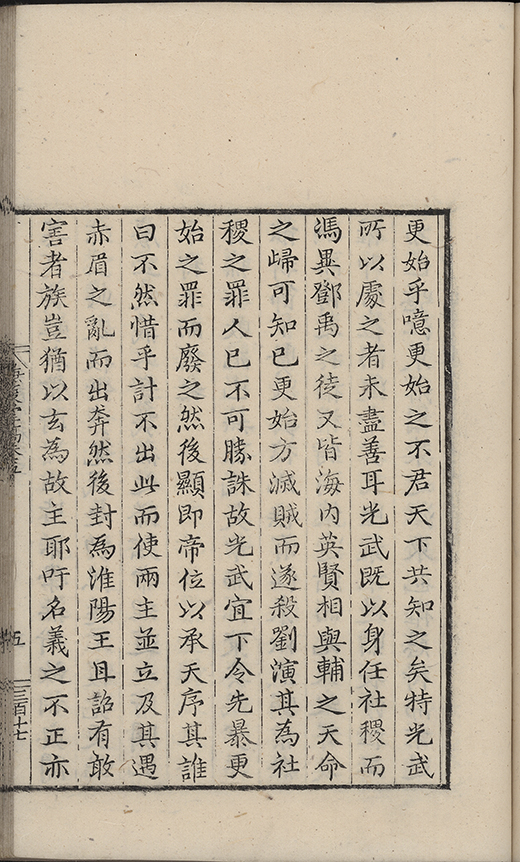 更始乎噫更始之不君天下共知之矣特光武
所以處之者未盡善耳光武既以身任社稷而
馮異鄧禹之徒又皆海内英賢相與輔之天命
之歸可知已更始方滅賊而遂殺劉演其為社
稷之罪人已不可勝誅故光武宜下令先暴更
始之罪而廢之然後顯即帝位以承天序其誰
曰不然惜乎計不出此而使兩主並立及其遇
赤眉之亂而出奔然後封為淮陽王且詔有敢
害者族豈猶以玄為故主耶吁名義之不正亦
五
三百十七